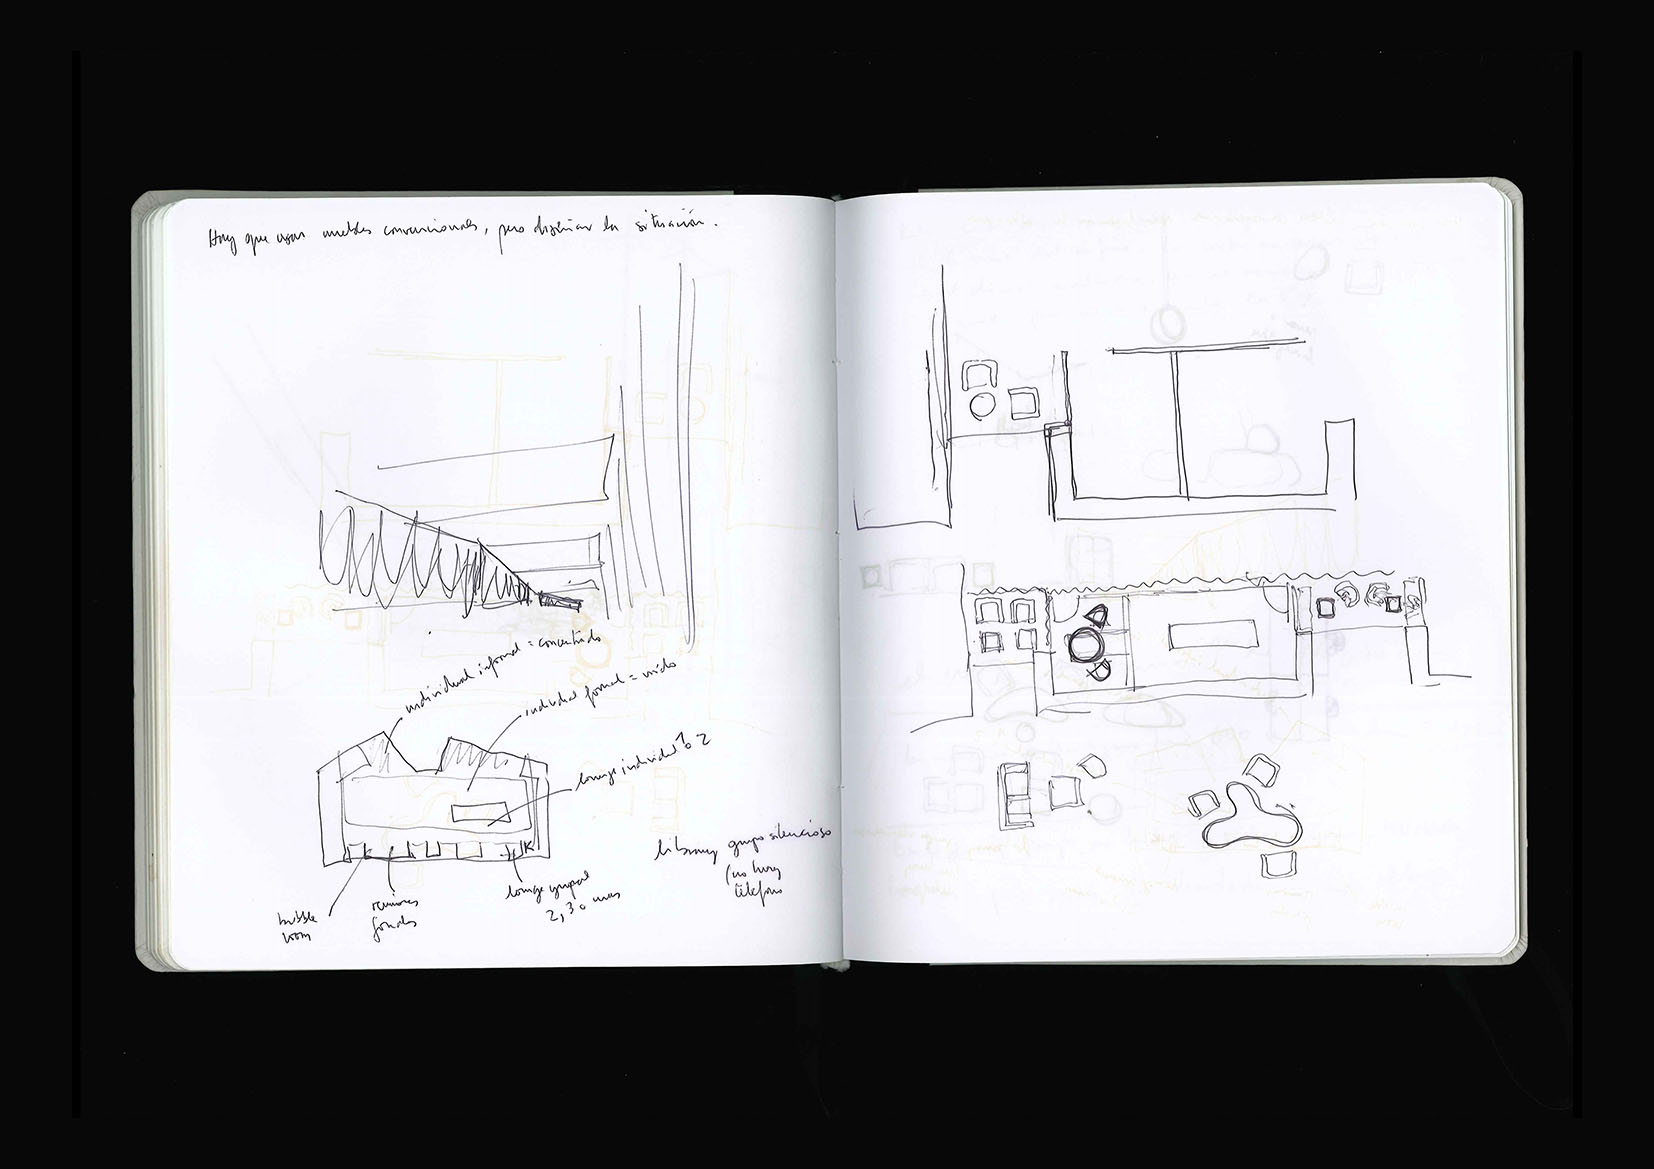 Hay que usar muebles convencionales, pero diseñar la situación.
individual informal = concentrado
individual formal = ruido
lounge individual 1 o 2
library grupo silencioso
(no hay
teléfono
bubble
room
reuniones
lounge grupal
2, 3 o mas